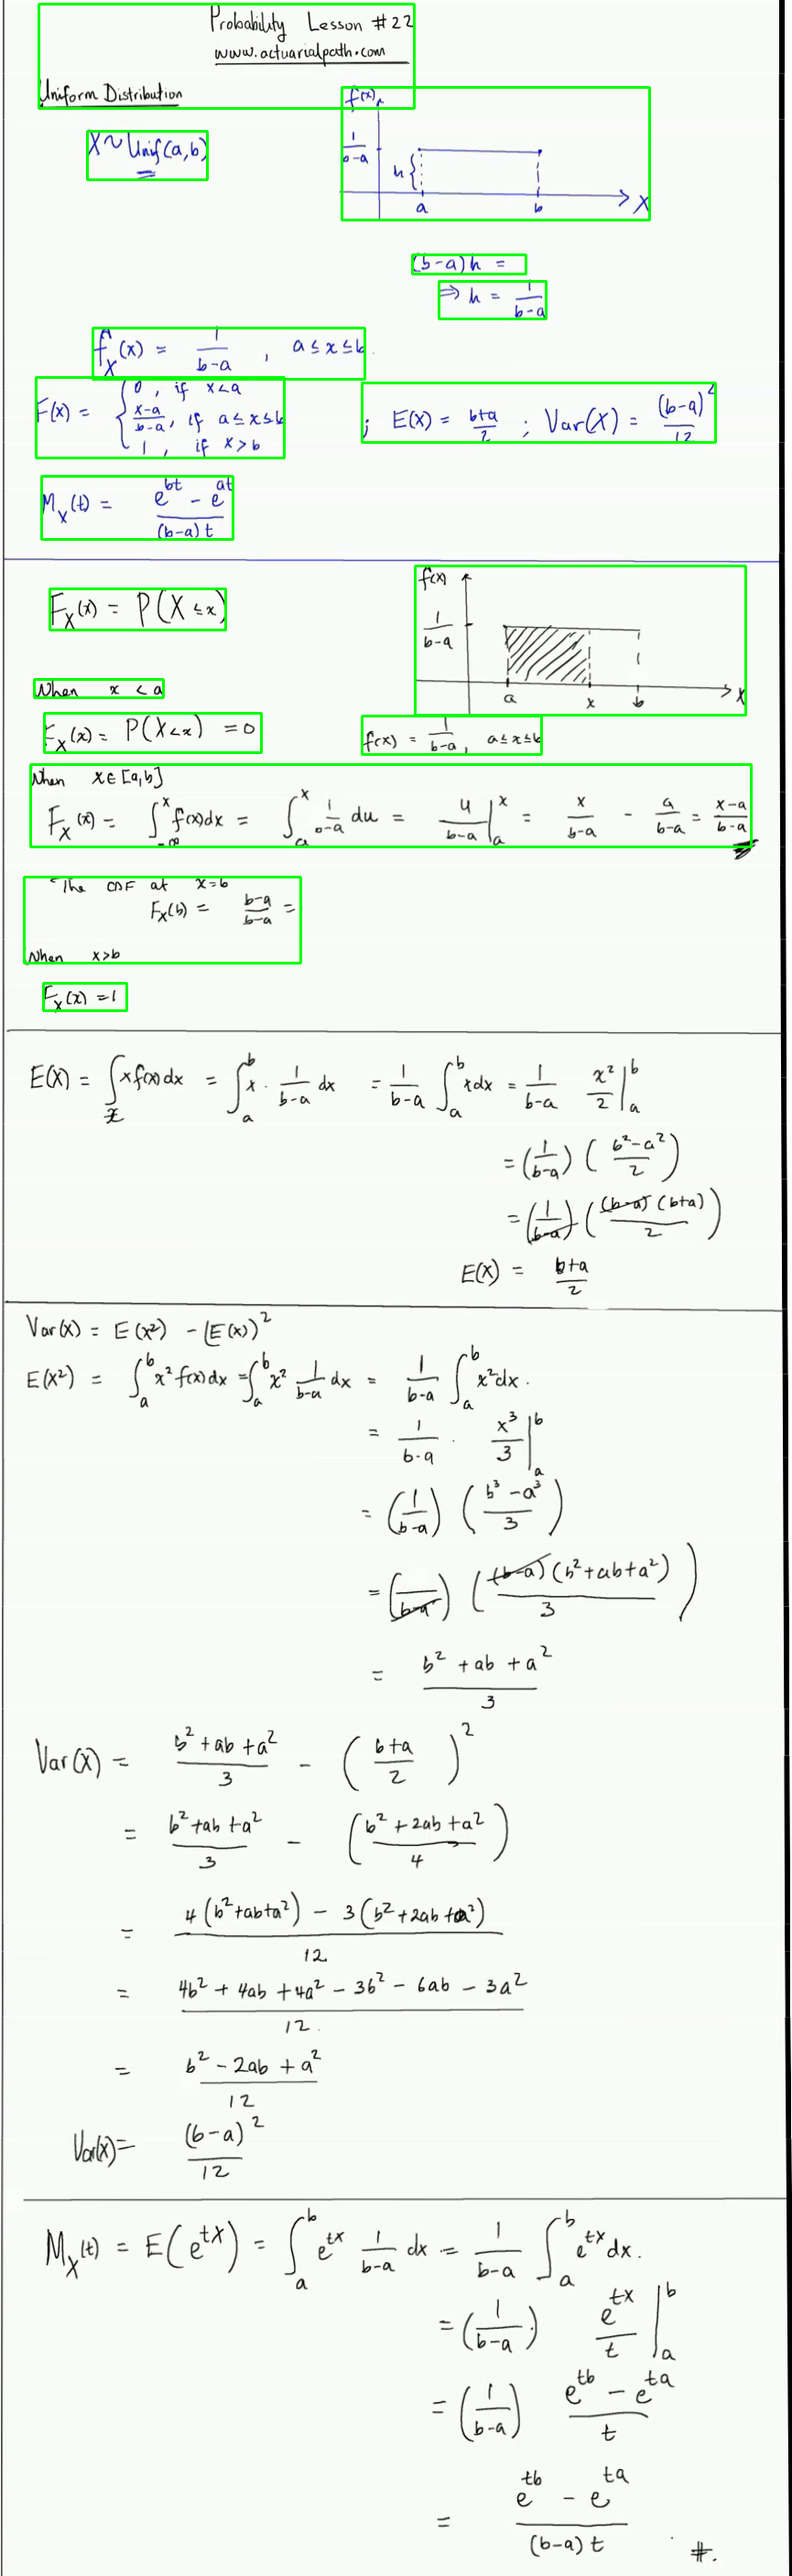 Probability Lesson #22
www.actuarialpath.com
Uniform Distribution
X ~ Unif(a,b)
f(x)
1/(b-a)
h {
a b X
(b-a)h =
⇒ h = 1/(b-a)
f_X(x) = 1/(b-a) , a ≤ x ≤ b.
F(x) = { 0 , if x<a
(x-a)/(b-a), if a ≤ x ≤ b
1 , if x>b
; E(X) = (b+a)/2 ; Var(X) = (b-a)^2/12
M_X(t) = (e^{bt} - e^{at})/((b-a)t)
F_X(x) = P(X ≤ x)
f(x)
1/(b-a)
a x b X
When x < a
F_X(x) = P(X<x) = 0
f(x) = 1/(b-a), a ≤ x ≤ b
When x ∈ [a,b]
F_X(x) = ∫_{-∞}^{x} f(x)dx = ∫_a^x 1/(b-a) du = u/(b-a) |_a^x = x/(b-a) - a/(b-a) = (x-a)/(b-a)
The CDF at x=b
F_X(b) = (b-a)/(b-a) =
When x>b
F_X(x) = 1
E(X) = ∫_x x f(x) dx = ∫_a^b x · 1/(b-a) dx = 1/(b-a) ∫_a^b x dx = 1/(b-a) x^2/2 |_a^b
= (1/(b-a)) ((b^2-a^2)/2)
= (1/(b-a)) ((b-a)(b+a)/2)
E(X) = (b+a)/2
Var(X) = E(X^2) - (E(X))^2
E(X^2) = ∫_a^b x^2 f(x) dx = ∫_a^b x^2 1/(b-a) dx = 1/(b-a) ∫_a^b x^2 dx.
= 1/(b-a) · x^3/3 |_a^b
= (1/(b-a)) ((b^3 - a^3)/3)
= (1/(b-a)) ((b-a)(b^2+ab+a^2)/3)
= (b^2 + ab + a^2)/3
Var(X) = (b^2 + ab + a^2)/3 - ((b+a)/2)^2
= (b^2 + ab + a^2)/3 - ((b^2 + 2ab + a^2)/4)
= (4(b^2+ab+a^2) - 3(b^2+2ab+a^2))/12
= (4b^2 + 4ab + 4a^2 - 3b^2 - 6ab - 3a^2)/12.
= (b^2 - 2ab + a^2)/12
Var(X) = (b-a)^2/12
M_X(t) = E(e^{tX}) = ∫_a^b e^{tx} 1/(b-a) dx = 1/(b-a) ∫_a^b e^{tx} dx.
= (1/(b-a)) e^{tx}/t |_a^b
= (1/(b-a)) (e^{tb} - e^{ta})/t
= (e^{tb} - e^{ta})/((b-a)t) #.